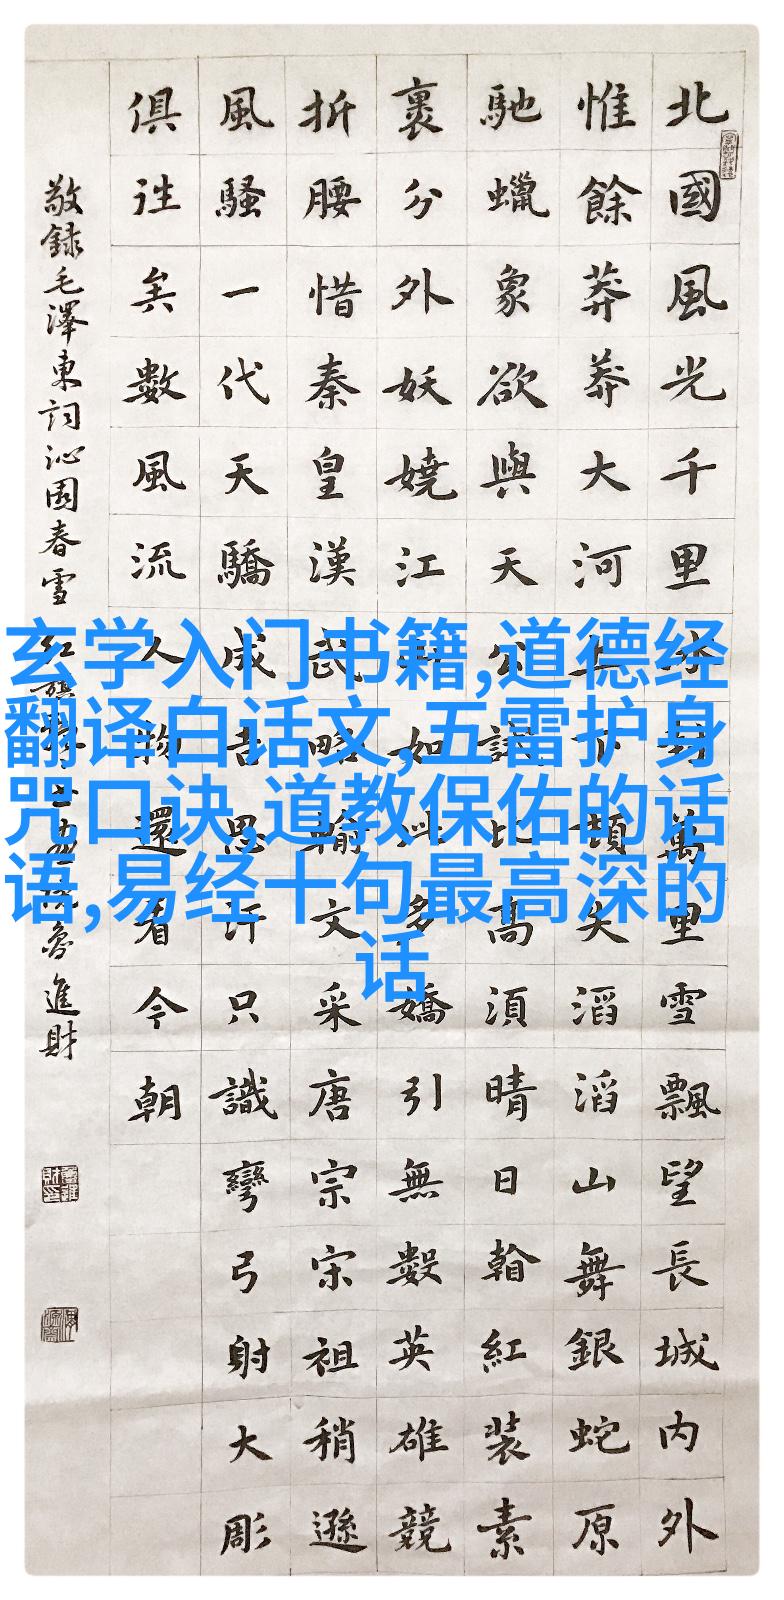 北國風光千里冰封萬里雪飄望長城內外
惟餘莽莽大河上下頓失滔滔山舞銀蛇原
馳蠟象欲與天公試比高須晴日翰紅裝素
裹分外妖嬈江山如此多嬌引無數英雄競
折腰惜秦皇漢武略輸文采唐宗宋祖稍遜
風騷一代天驕成吉思汗只識彎弓射大彫
俱往矣數風流人物還看今朝
敬録毛澤東詞沁園春雪 紅旗魯進財
玄学入门书籍,道德经
翻译白话文,五雷护身
咒口诀,道教保佑的话
语,易经十句最高深的
话